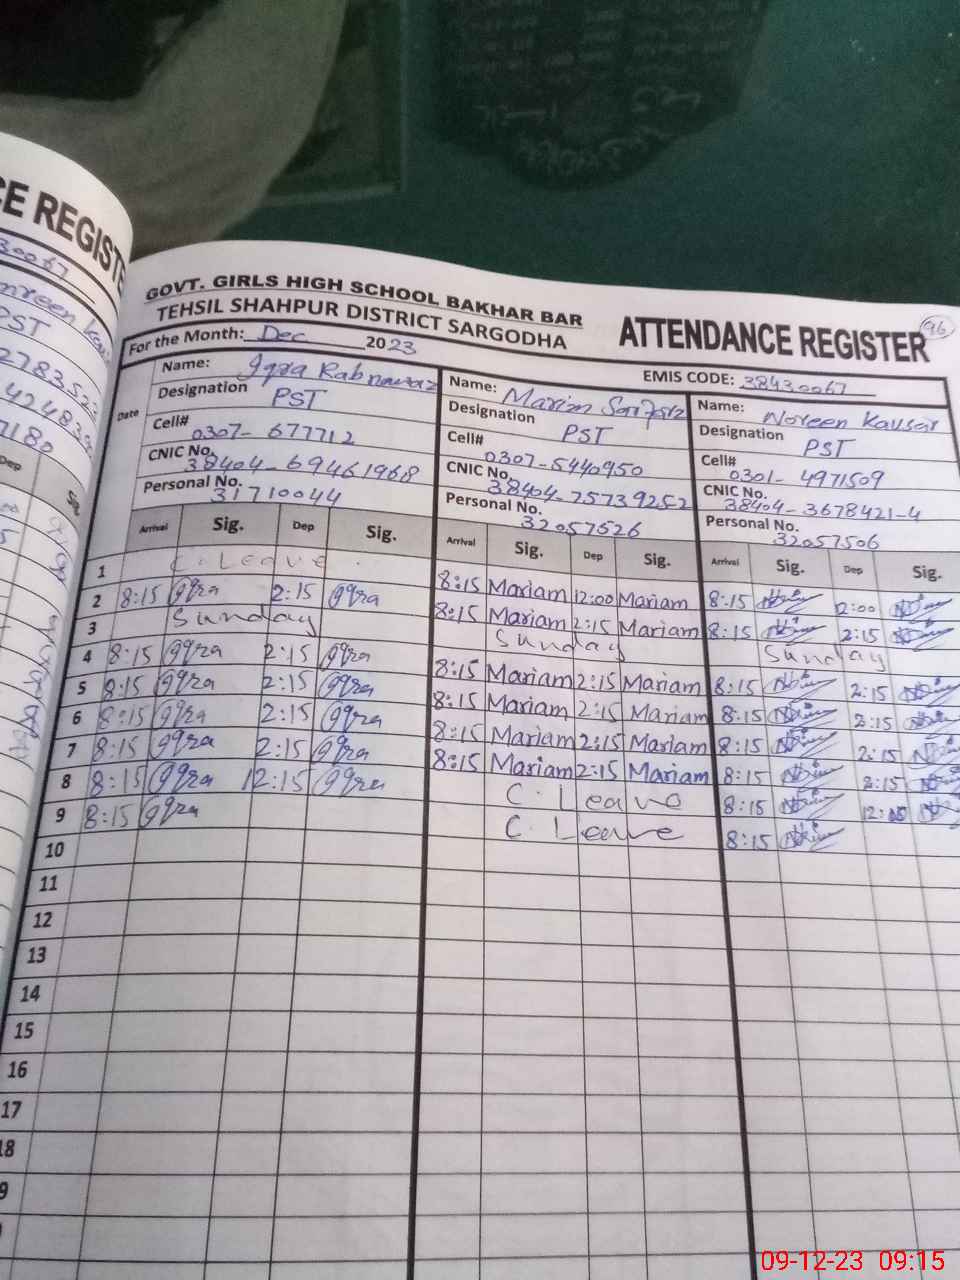 CE REGISTE
30067
PST
7180
Dep
Sig.
GOVT. GIRLS HIGH SCHOOL BAKHAR BAR
TEHSIL SHAHPUR DISTRICT SARGODHA
ATTENDANCE REGISTER
96
For the Month: Dec 2023
EMIS CODE: 38430067
Date
Name: Iqra Rabnawaz
Designation PST
Cell# 0307-677712
CNIC No. 38404-69461968
Personal No. 31710044
Name: Mariam Sarfraz
Designation PST
Cell# 0307-5440950
CNIC No. 38404-75739252
Personal No. 32057526
Name: Noreen Kausar
Designation PST
Cell# 0301-4971509
CNIC No. 38404-3678421-4
Personal No. 32057506
Arrival Sig. Dep Sig. Arrival Sig. Dep Sig. Arrival Sig. Dep Sig.
1 C. Leave 8:15 Mariam 12:00 Mariam 8:15 12:00
2 8:15 Iqra 2:15 Iqra 8:15 Mariam 2:15 Mariam 8:15 2:15
3 Sunday Sunday Sunday
4 8:15 Iqra 2:15 Iqra 8:15 Mariam 2:15 Mariam 8:15 2:15
5 8:15 Iqra 2:15 Iqra 8:15 Mariam 2:15 Mariam 8:15 2:15
6 8:15 Iqra 2:15 Iqra 8:15 Mariam 2:15 Mariam 8:15 2:15
7 8:15 Iqra 2:15 Iqra 8:15 Mariam 2:15 Mariam 8:15 2:15
8 8:15 Iqra 12:15 Iqra C. Leave 8:15
9 8:15 Iqra C. Leave 8:15
10
11
12
13
14
15
16
17
18
9
09-12-23 09:15